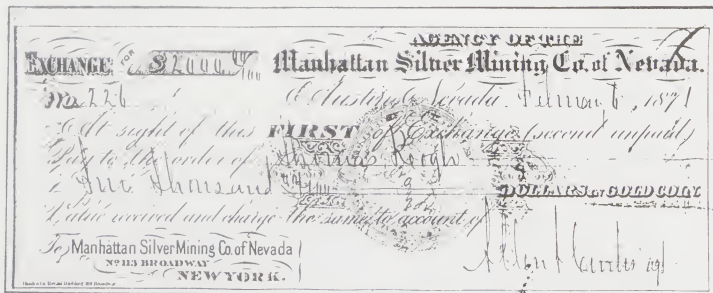 AGENCY OF THE
EXCHANGE FOR $2000 00/100 Manhattan Silver Mining Co. of Nevada.
No. 226 Austin, Nevada. 6, 1871
At sight of this FIRST of Exchange (second unpaid)
Pay to the order of Thomas
Two Thousand DOLLARS in GOLD COIN
Value received and charge the same to account of
To Manhattan Silver Mining Co. of Nevada
No 113 BROADWAY
NEW YORK.
Allen A. Curtis